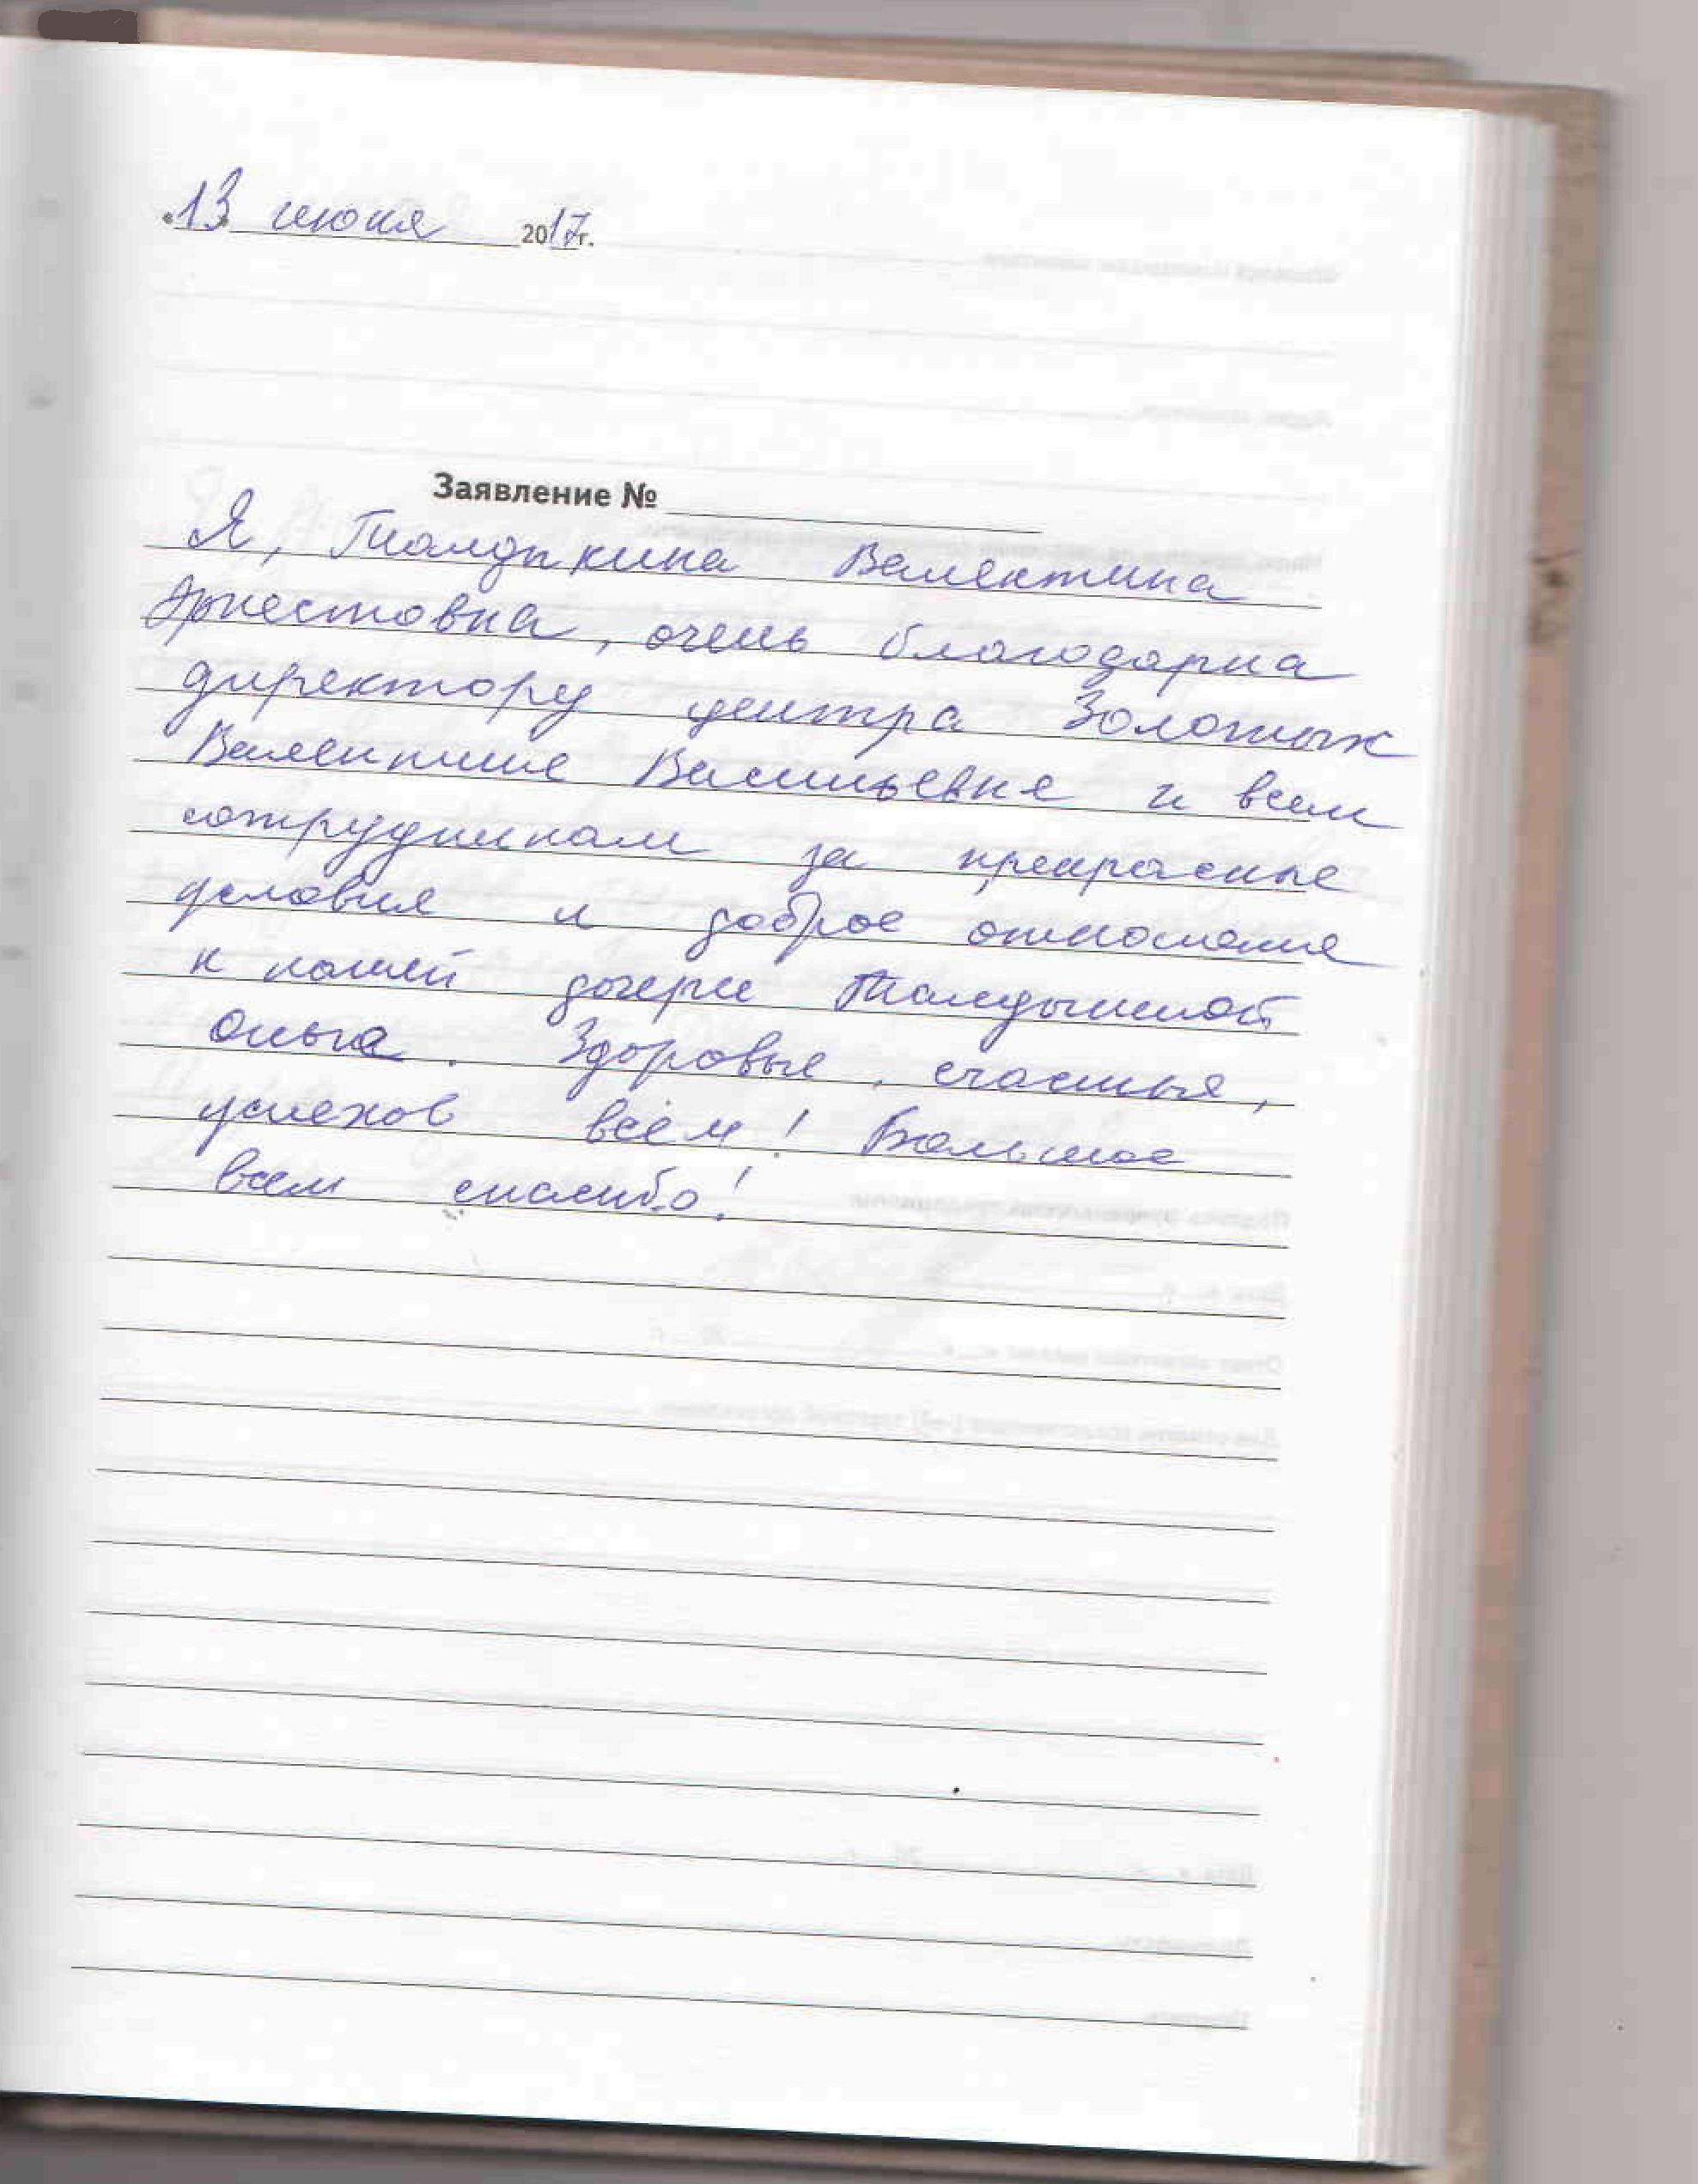 «13» июня 2017г.
Заявление №
Я, Валентина
Эрнестовна, очень благодарна
директору центра Золотых
Валентине Васильевне и всем
сотрудникам за прекрасные
условия и доброе отношение
к нашей дочери
Ольга. Здоровья, счастья,
успехов всем! Большое
всем спасибо!